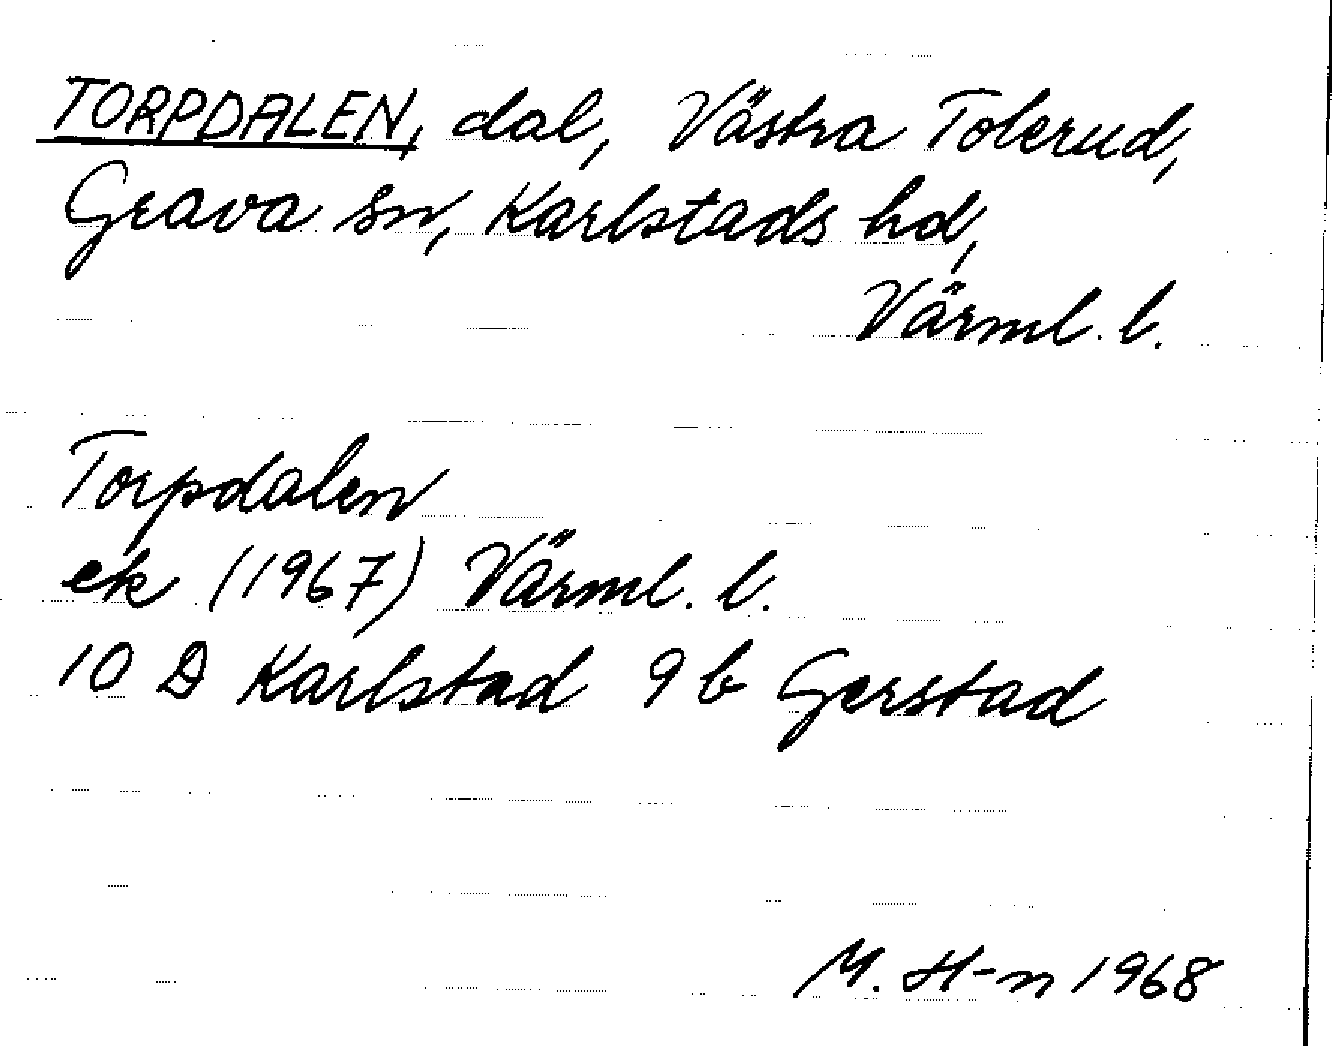 TORPDALEN, dal, Västra Tolerud,
Grava sn, Karlstads hd,
Värml. l.
Torpdalen
ek (1967) Värml. l.
10 D Karlstad 9 b Gerstad
M. H-n 1968